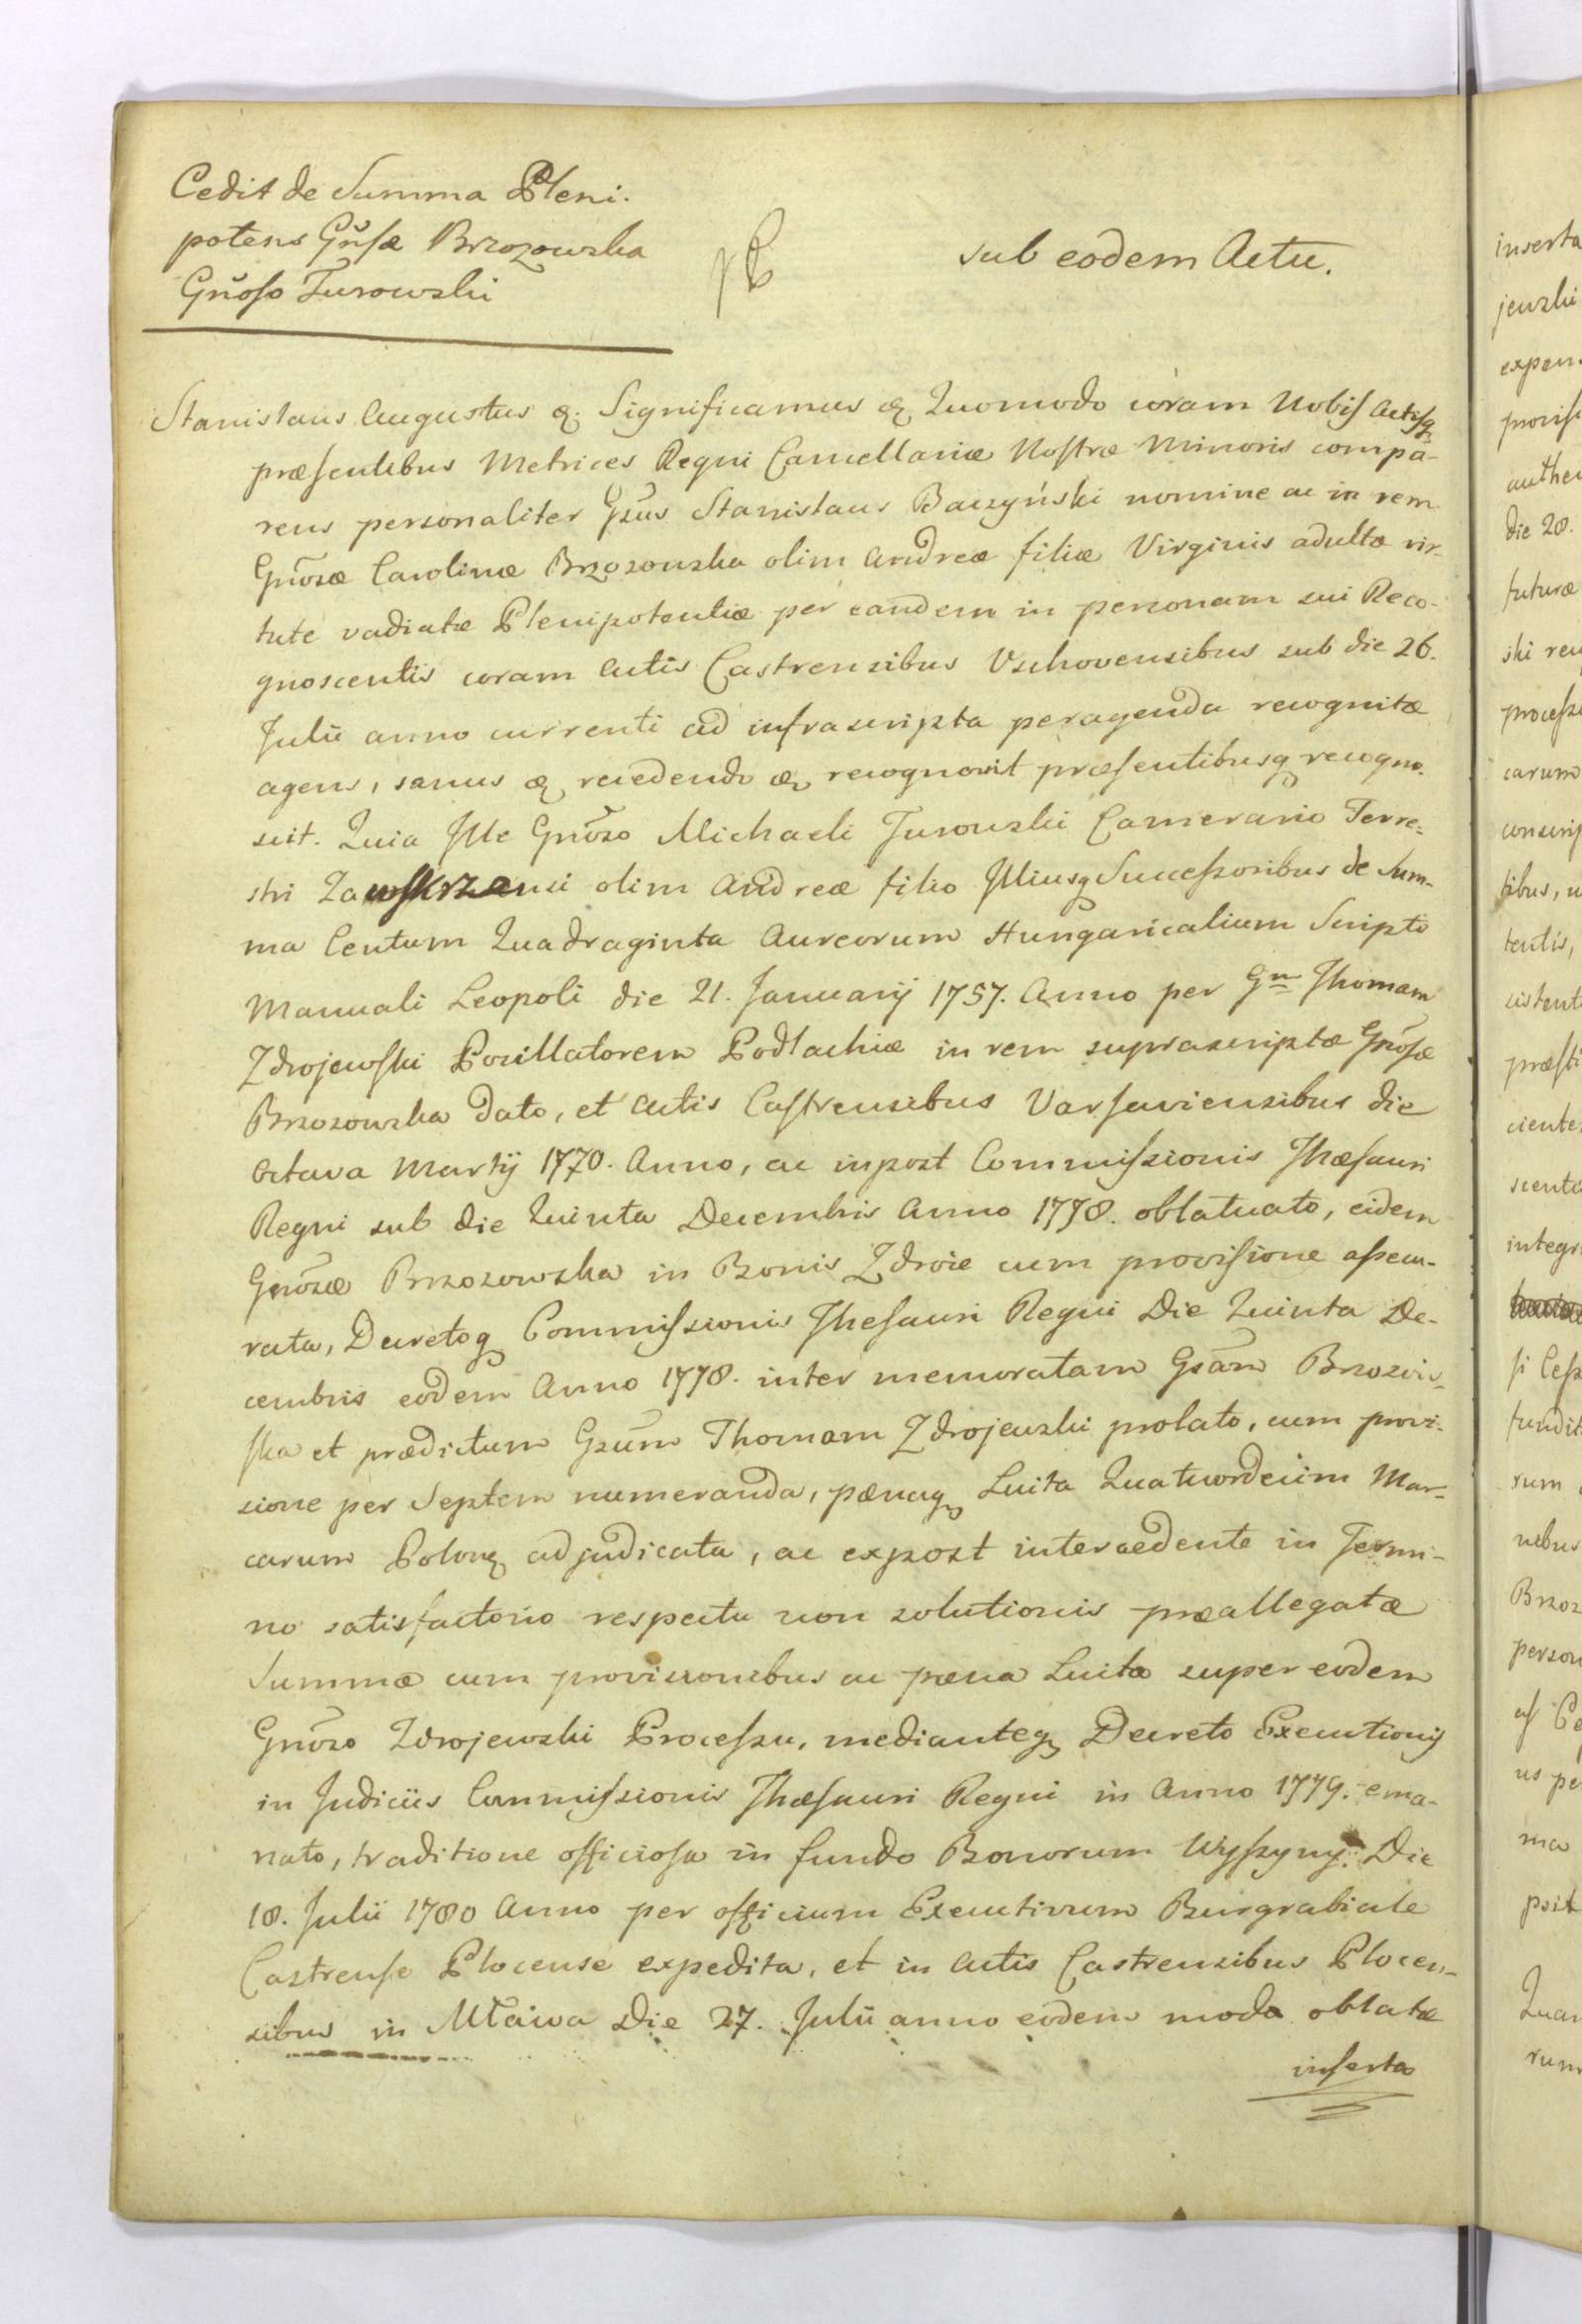 Cedit de Summa Pleni.
potens Gnsæ Brzozowska
Gnoso Turowski
sub eodem Actu.
Stanislaus Augustus &. Significamus & Quomodo coram Nobis Actisq
præsentibus Metrices Regni Cancellariæ Nostræ Minoris compa-
rens personaliter Gsus Stanislaus Baczyński nomine ac in rem
Gnosæ Carolinæ Brzozowska olim Andreæ filiæ Virginis adultæ vir-
tute vadiatæ Plenipotentiæ per eandem in personam sui Reco-
gnoscentis coram Actis Castrensibus Vschovensibus sub die 26.
Julii anno currenti ad infrascripta peragenda recognitæ
agens, sanus & recedendo & recognovit præsentibusq recogno-
scit. Quia Ille Gnoso Michaeli Turowski Camerario Terre-
stri Zawskrzensi olim Andreæ filio Illiusq Successoribus de Sum-
ma Centum Quadraginta Aureorum Hungaricalium Scripto
Manuali Leopoli die 21. Januarij 1757. Anno per Gm Thomam
Zdrojewski Pocillatorem Podlachiæ in rem suprascriptæ Gnosæ
Brzozowska dato, et Actis Castrensibus Varsaviensibus die
Octava Martij 1770. Anno, ac inpost Commissionis Thæsauri
Regni sub die Quinta Decembris Anno 1778. oblatuato, eidem
Gnosæ Brzozowska in Bonis Zdroie cum provisione assecu-
rata, Decretoq Commissionis Thesauri Regni Die Quinta De-
cembris eodem Anno 1778. inter memoratam Gsam Brzozow-
ska et prædictum Gsum Thomam Zdrojewski prolato, cum provi-
sione per Septem numeranda, pænaq Luita Quatuordecim Mar-
carum Polonq adjudicata, ac expost intercedente in Termi-
no satisfactorio respectu non solutionis præallegatæ
Summæ cum provisionibus ac pæna Luita super eodem
Gnoso Zdrojewski Processu, medianteq Decreto Executionis
in Judiciis Commissionis Thæsauri Regni in Anno 1779. ema-
nato, traditione officiosa in fundo Bonorum Wyszyny. Die
18. Julii 1780 Anno per officium Executivum Burgrabiale
Castrense Plocense expedita, et in Actis Castrensibus Plocen-
sibus in Mława Die 27. Julii anno eodem modo oblatæ
inserta
inserta
expen.
die 20.
futuræ
ski rec
carum
tentis,
integr
fundit
rum
nibus
Brzoz
person
us pe
ma
Quan
rum